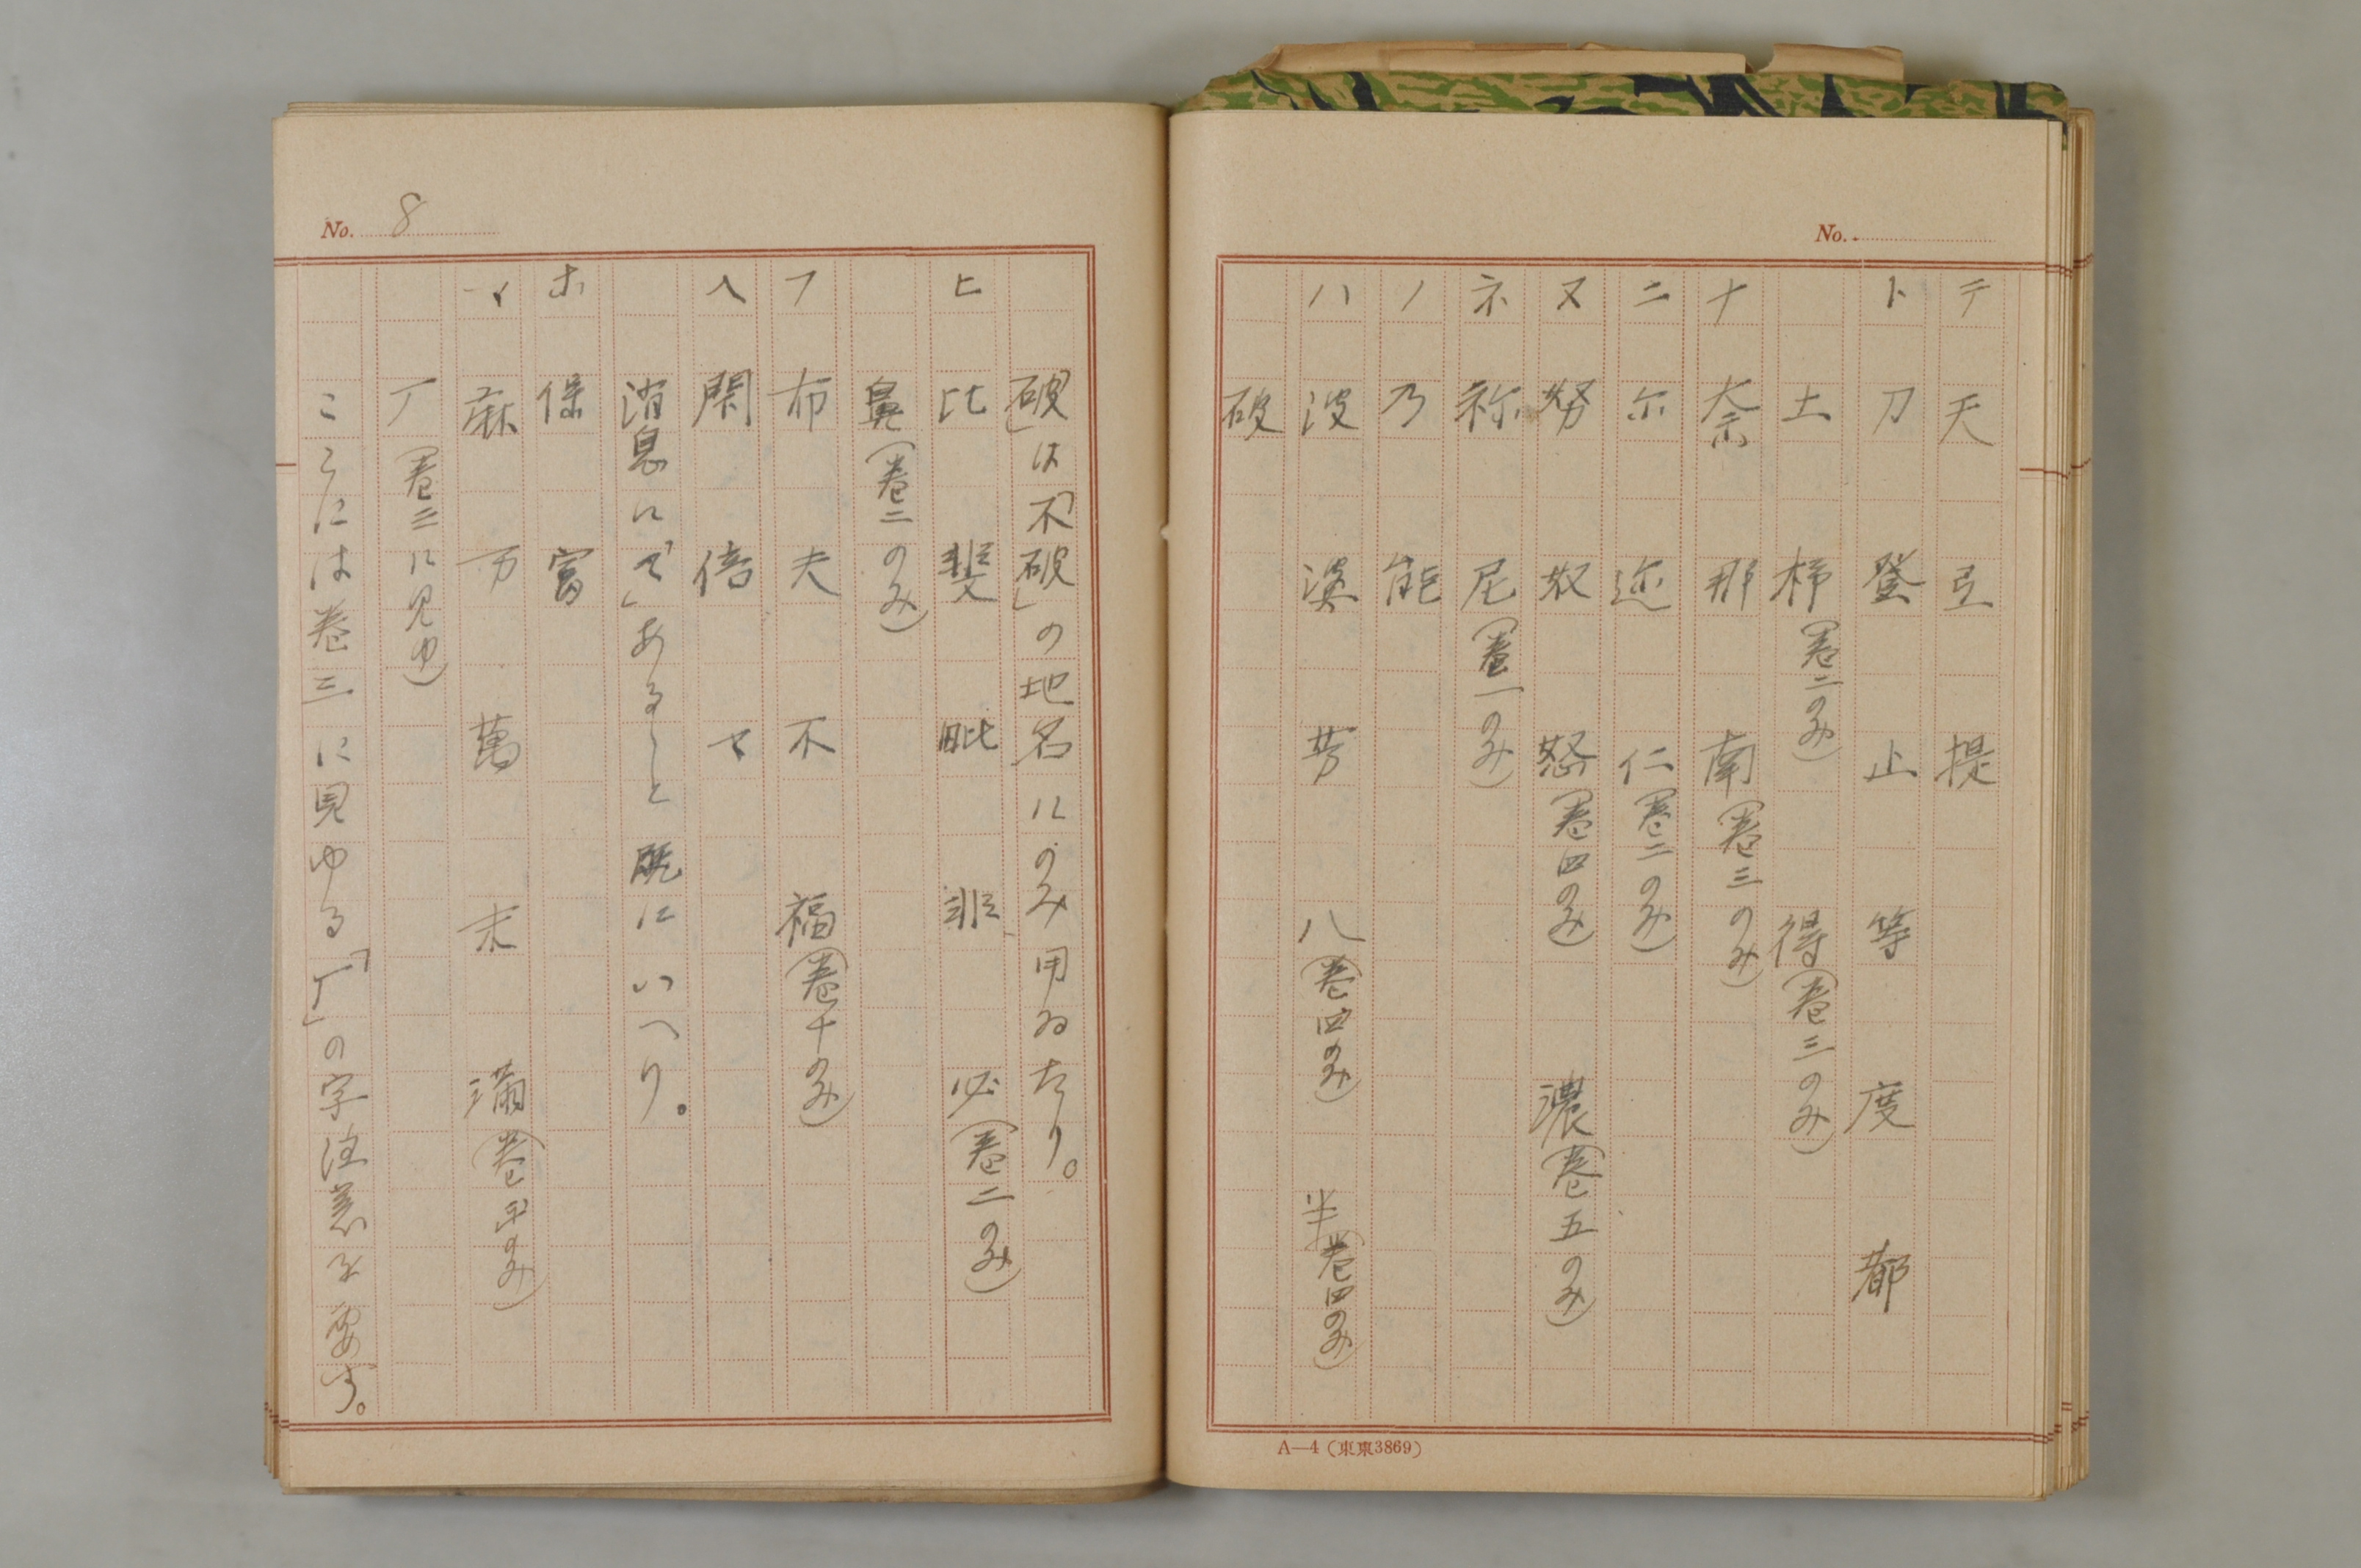 No.
テ 天 弖 提
ト 刀 登 止 等 度 都
土 杼(巻二のみ) 得(巻三のみ)
ナ 奈 那 南(巻三のみ)
ニ 尓 迩 仁(巻二のみ)
ヌ 努 奴 怒(巻四のみ) 濃(巻五のみ)
ネ 祢 尼(巻一のみ)
ノ 乃 能
ハ 波 婆 芳 八(巻四のみ) 半(巻四のみ)
破
A—4(東東3869)
No. 8
「破」は「不破」の地名にのみ用ゐたり。
ヒ 比 斐 毗 非 必(巻二のみ)
鼻(巻二のみ)
フ 布 夫 不 福(巻十のみ)
ヘ 閇 倍 マ
消息に「マ」あること既にいへり。
ホ 保 富
マ 麻 万 萬 末 満(巻のみ)
丆(巻三に見ゆ)
こゝには巻三に見ゆる「丆」の字注意を要す。